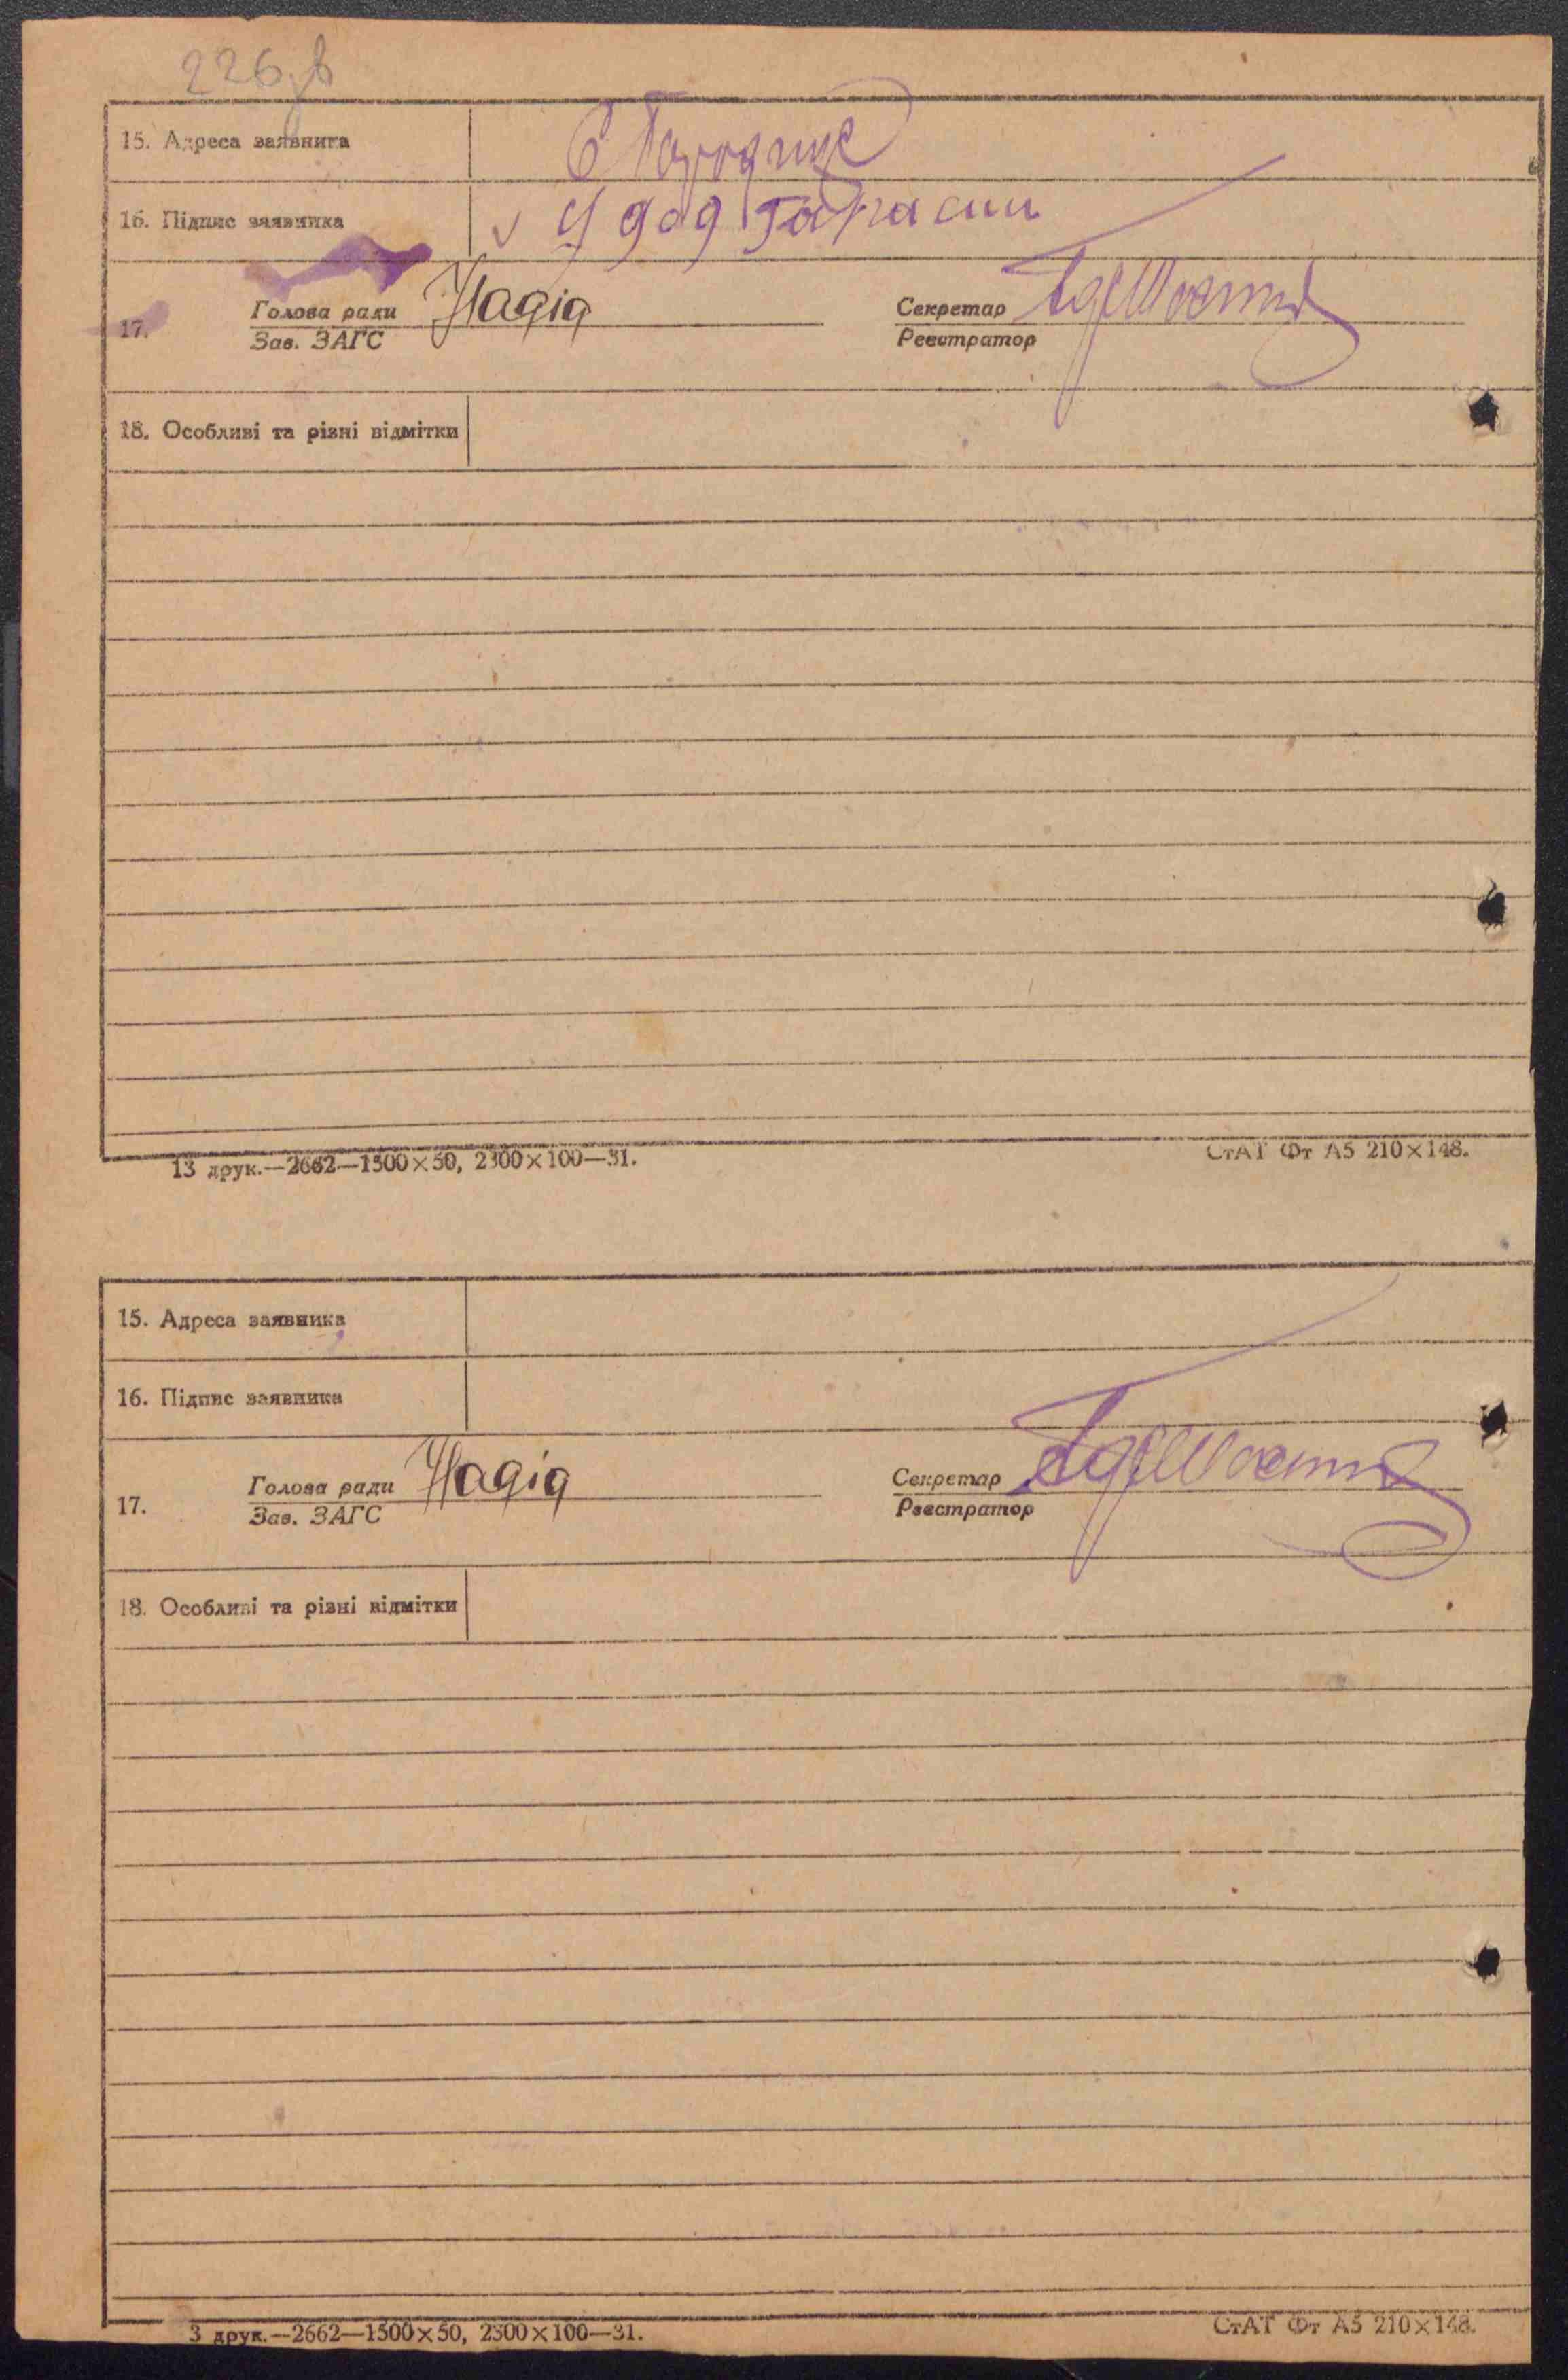 226зв
15. Адреса заявника
16. Підпис заявника
17. Голова ради Секретар
Зав. ЗАГС Реєстратор
18. Особливі та різні відмітки
13 друк.—2662—1500×50, 2300×100—31. СтАТ Фт А5 210×148.
15. Адреса заявника
16. Підпис заявника
17. Голова ради Секретар
Зав. ЗАГС Реєстратор
18. Особливі та різні відмітки
3 друк.—2662—1500×50, 2300×100—31. СтАТ Фт А5 210×148.